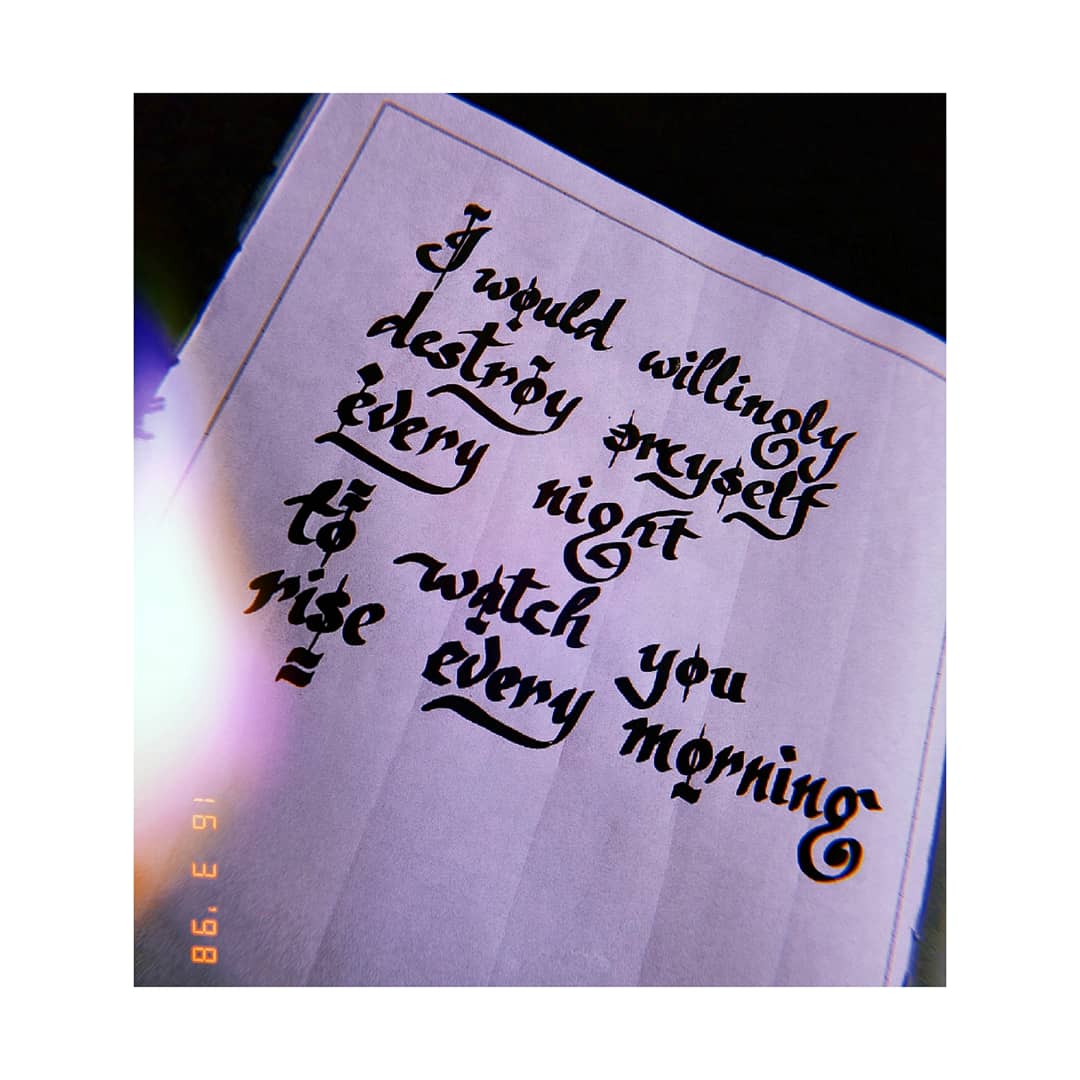 I would willingly
destroy myself
every night
to watch you
rise every morning
16 3 '98